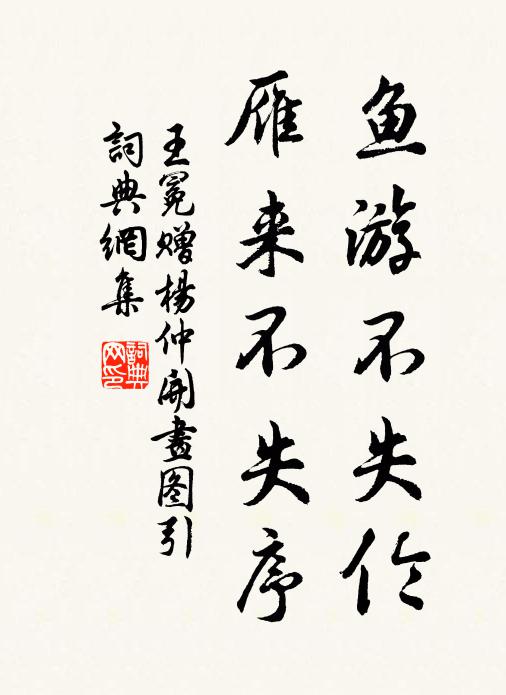 鱼游不失伦
雁来不失序
王冕赠杨仲开画图引
詞典網集
詞典网印